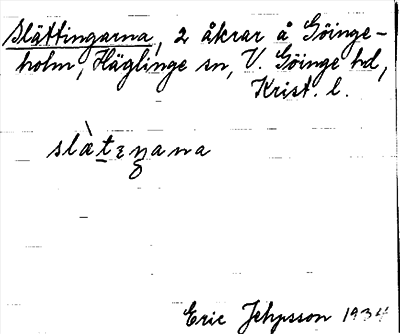 Slättingarna, 2 åkrar å Göinge-
holm, Häglinge sn, V. Göinge hd,
Krist. l.
slàtɛŋana
Eric 1934